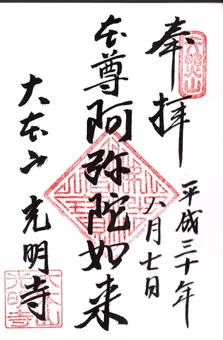 奉拝
平成三十年
八月七日
本尊阿弥陀如来
大本山
光明寺